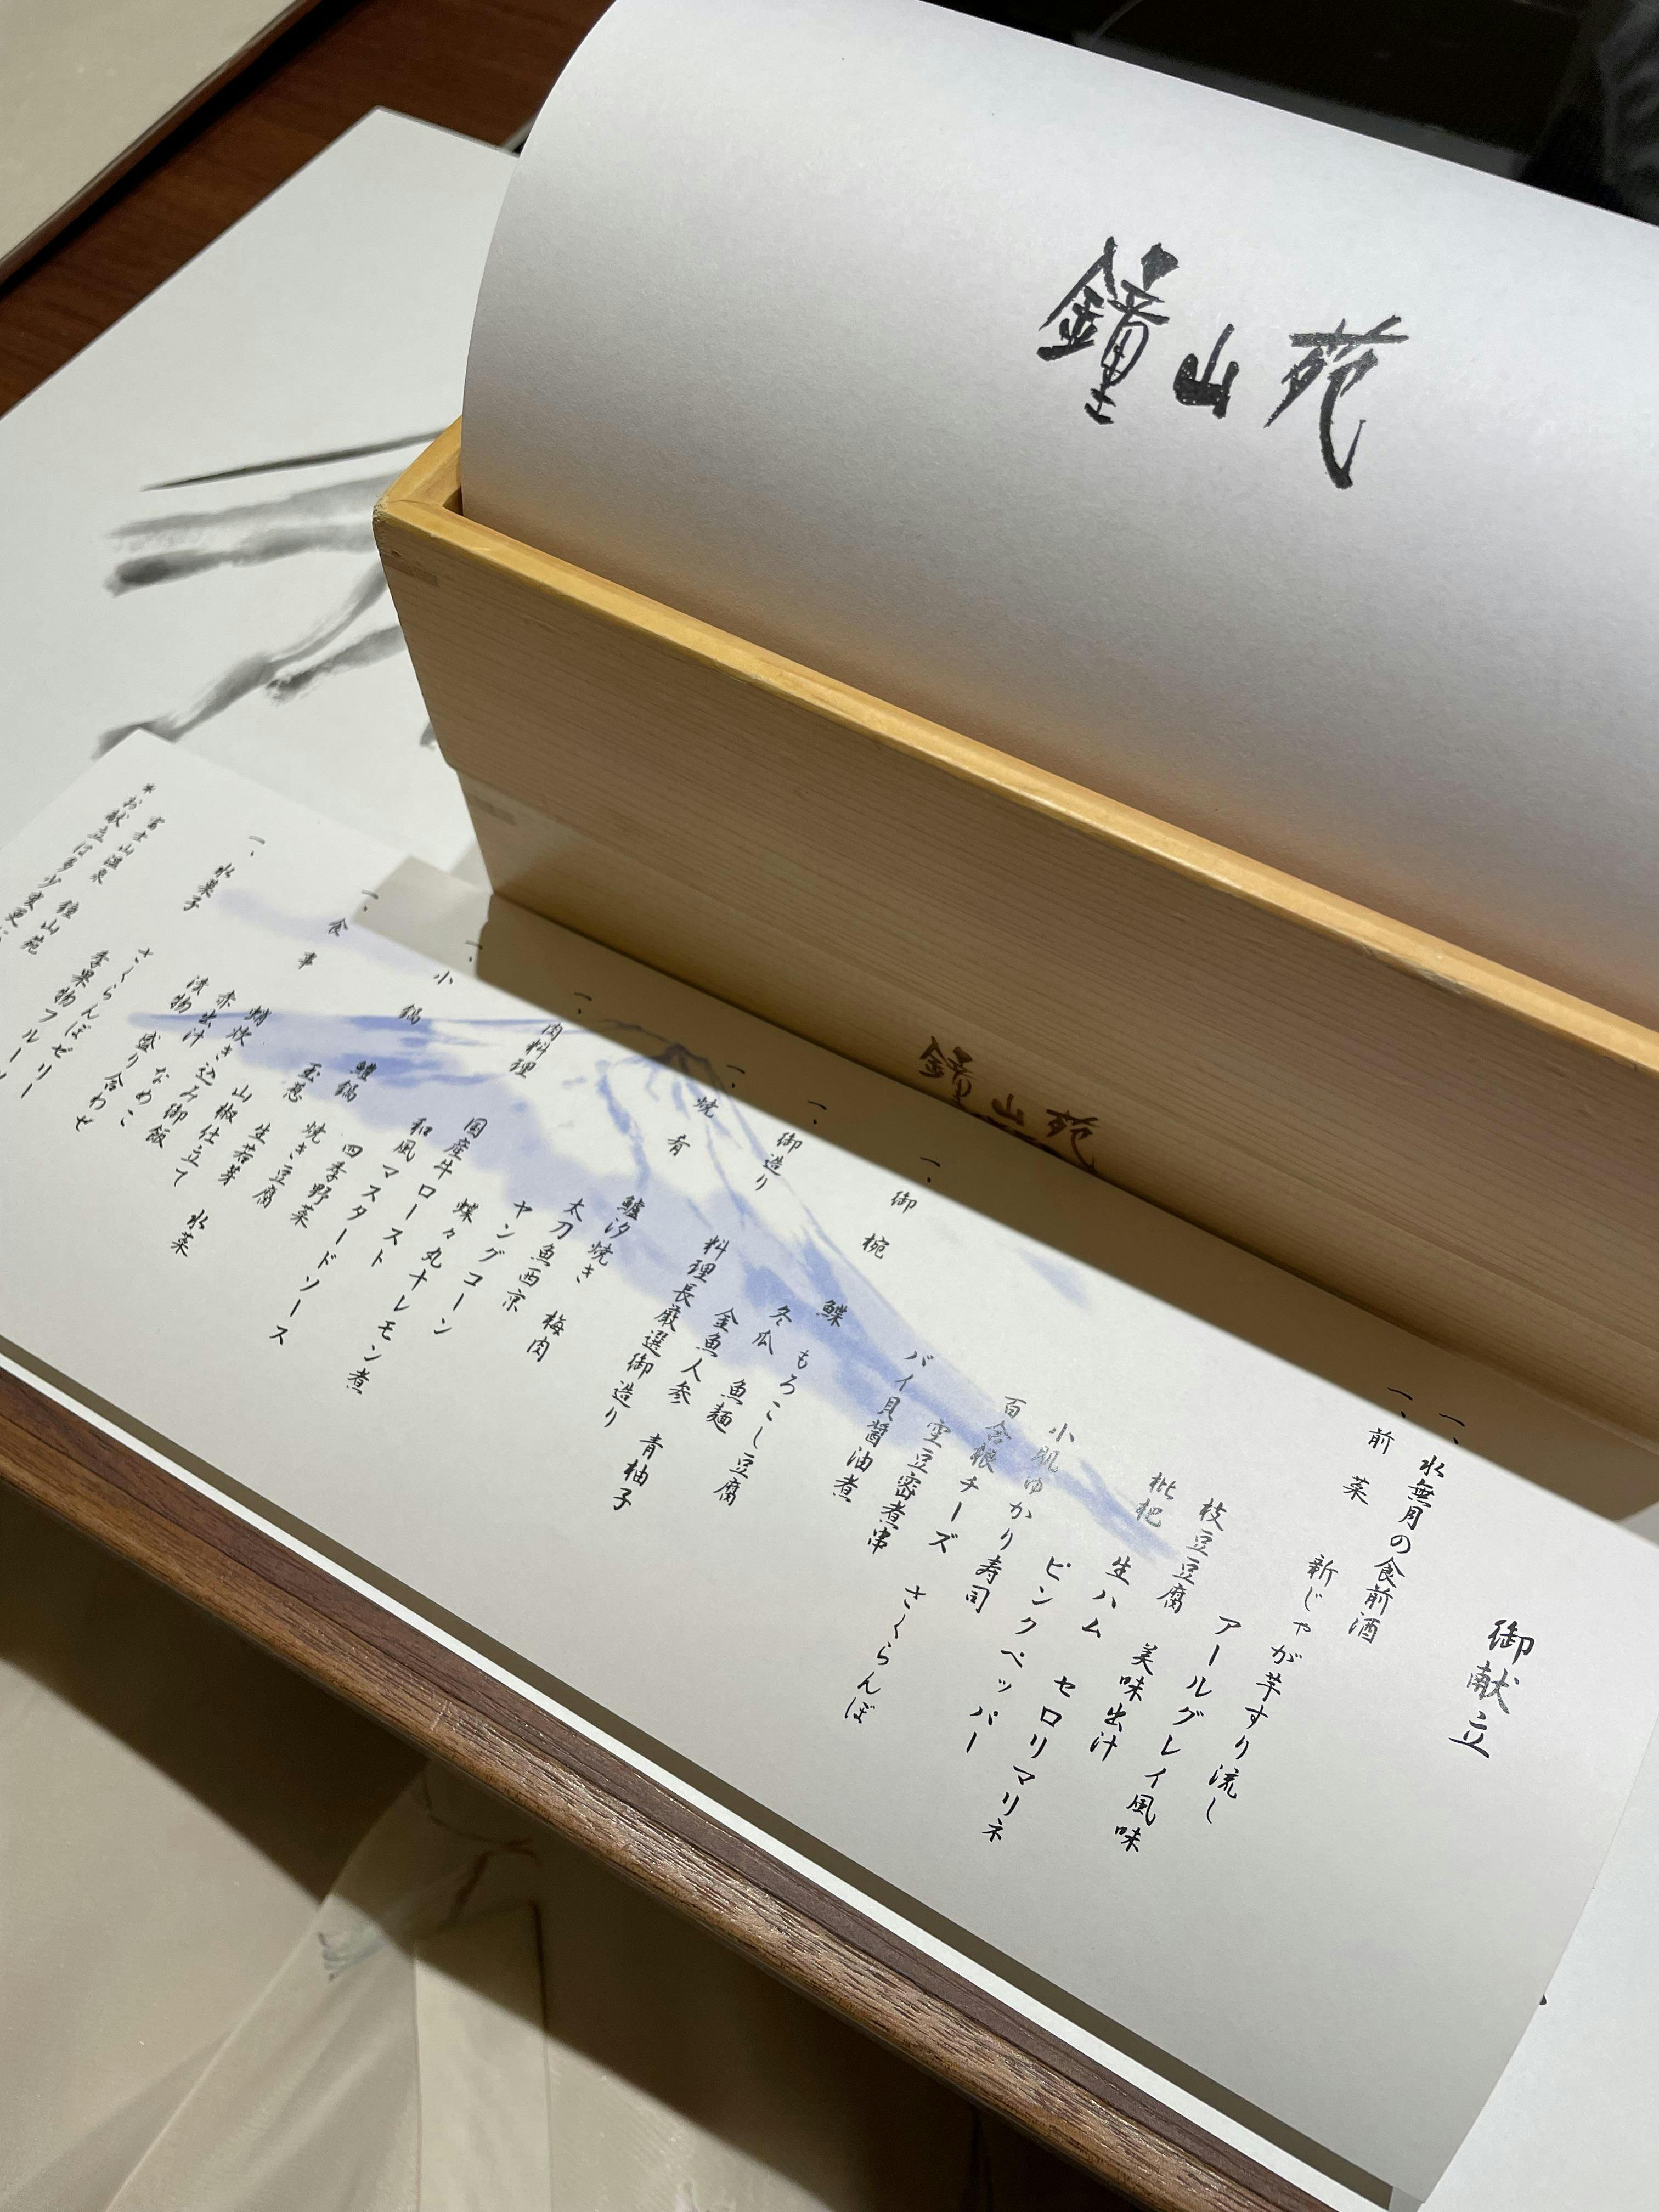 鐘山苑
鐘山苑
御献立
一、水無月の食前酒
一、前菜
新じゃが芋すり流し
アールグレイ風味
枝豆豆腐 美味出汁
枇杷 生ハム セロリマリネ
ピンクペッパー
小肌ゆかり寿司
百合根チーズ さくらんぼ
空豆密煮串
バイ貝醤油煮
一、御椀
鰈 もろこし豆腐
冬瓜 魚麺
金魚人参 青柚子
一、御造り
料理長厳選御造り
一、焼肴
鱸汐焼き 梅肉
太刀魚西京
ヤングコーン
蝶々丸十レモン煮
一、肉料理
国産牛ロースト
和風マスタードソース
四季野菜
一、小鍋
鱧鍋 焼き豆腐
玉葱 生若芽 水菜
山椒仕立て
一、食事
蛸炊き込み御飯
赤出汁 なめこ
漬物 盛り合わせ
一、水菓子
さくらんぼゼリー
季果物フルーツ
富士山温泉 鐘山苑
＊お献立は多少変更